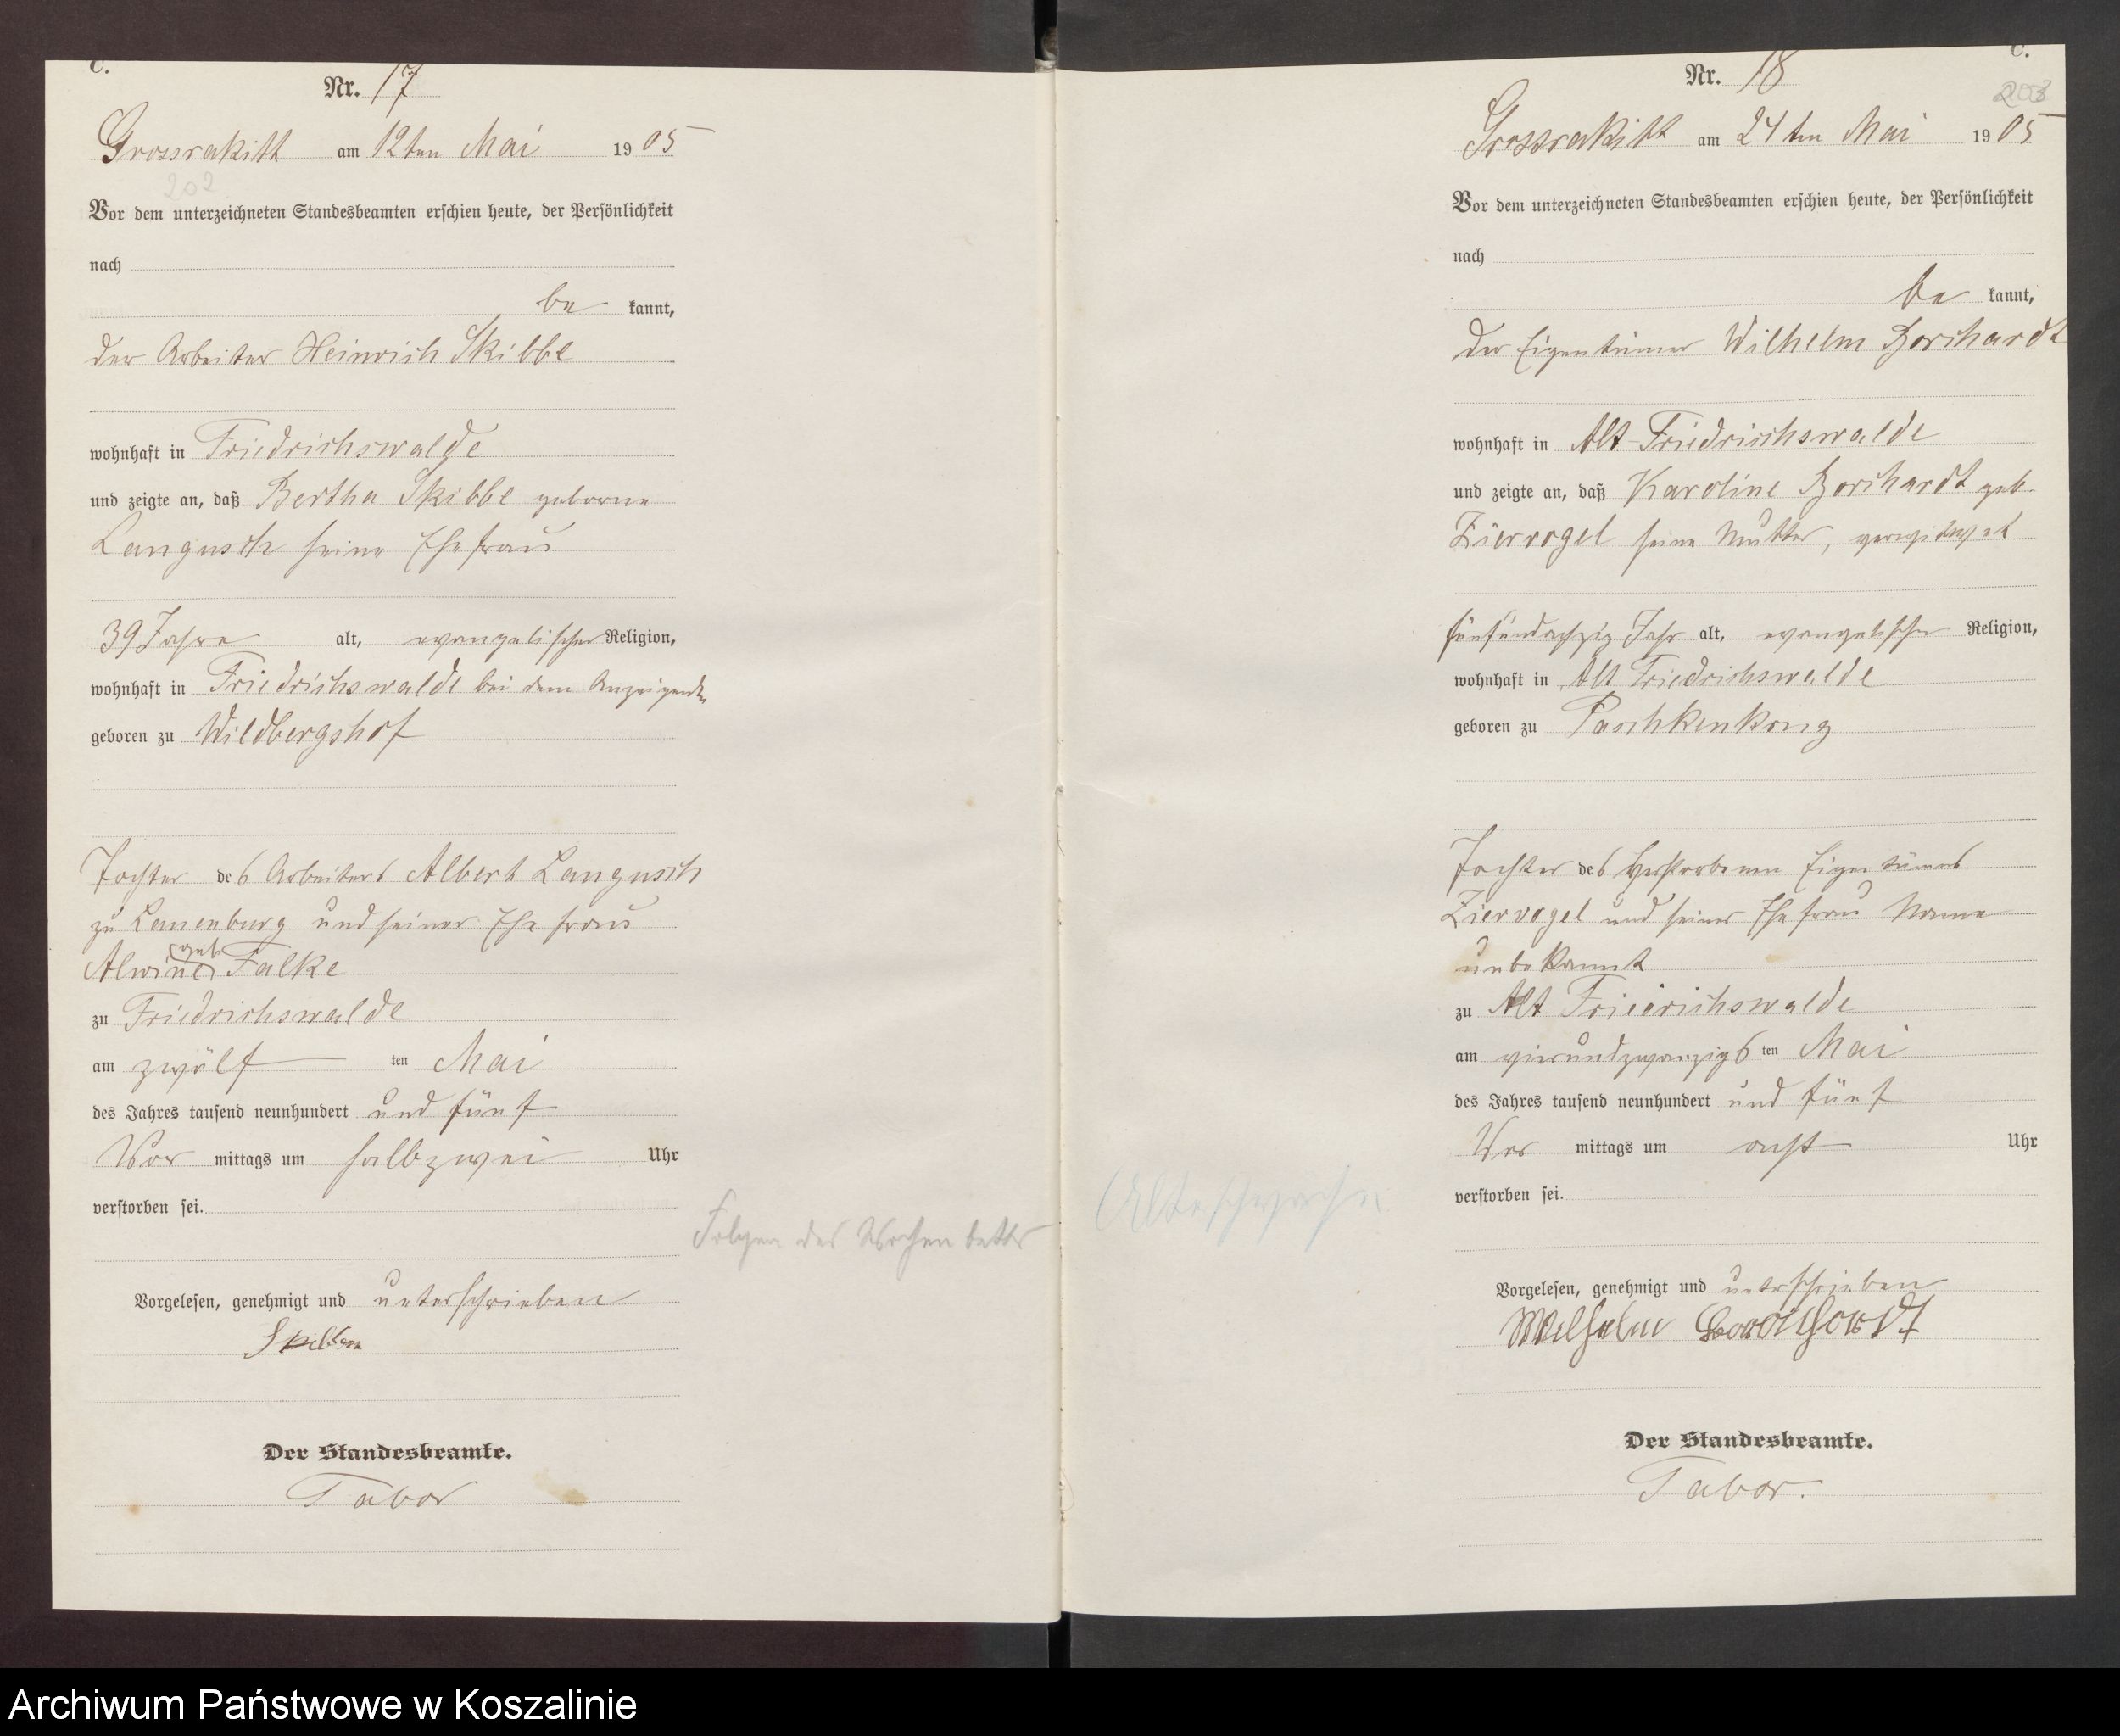 C.
Nr. 17
Grossrakitt am 12ten Mai 1905
202
Vor dem unterzeichneten Standesbeamten erschien heute, der Persönlichkeit
nach
be kannt,
der Arbeiter Heinrich Skibbe
wohnhaft in Friedrichswalde
und zeigte an, daß Bertha Skibbe geborne
Langusch seine Ehefrau
39 Jahre alt, evangelischer Religion,
wohnhaft in Friedrichswalde bei dem Anzeigenden
geboren zu Wildbergshof
Tochter des Arbeiters Albert Langusch
zu Lauenburg und seiner Ehefrau
Alwine geb Falke
zu Friedrichswalde
am zwölf ten Mai
des Jahres tausend neunhundert und fünf
Vor mittags um halbzwei Uhr
verstorben sei.
Folgen des Wochenbetts
Vorgelesen, genehmigt und unterschrieben
Der Standesbeamte.
Tabor
C.
Nr. 18
203
Grossrakitt am 24ten Mai 1905
Vor dem unterzeichneten Standesbeamten erschien heute, der Persönlichkeit
nach
be kannt,
der Eigentümer Wilhelm Borchardt
wohnhaft in Alt-Friedrichswalde
und zeigte an, daß Karoline Borchardt geb
Ziervogel seine Mutter, verwitwet
fünfundachzig Jahr alt, evangelischer Religion,
wohnhaft in Alt Friedrichswalde
geboren zu Paschkenkrug
Tochter des verstorbenen Eigentümers
Ziervogel und seiner Ehefrau Name
unbekannt
zu Alt Friedrichswalde
am vierundzwanzigs ten Mai
des Jahres tausend neunhundert und fünf
Vor mittags um acht Uhr
verstorben sei.
Altersschwäche
Vorgelesen, genehmigt und unterschrieben
Wilhelm Borchardt
Der Standesbeamte.
Tabor.
Archiwum Państwowe w Koszalinie